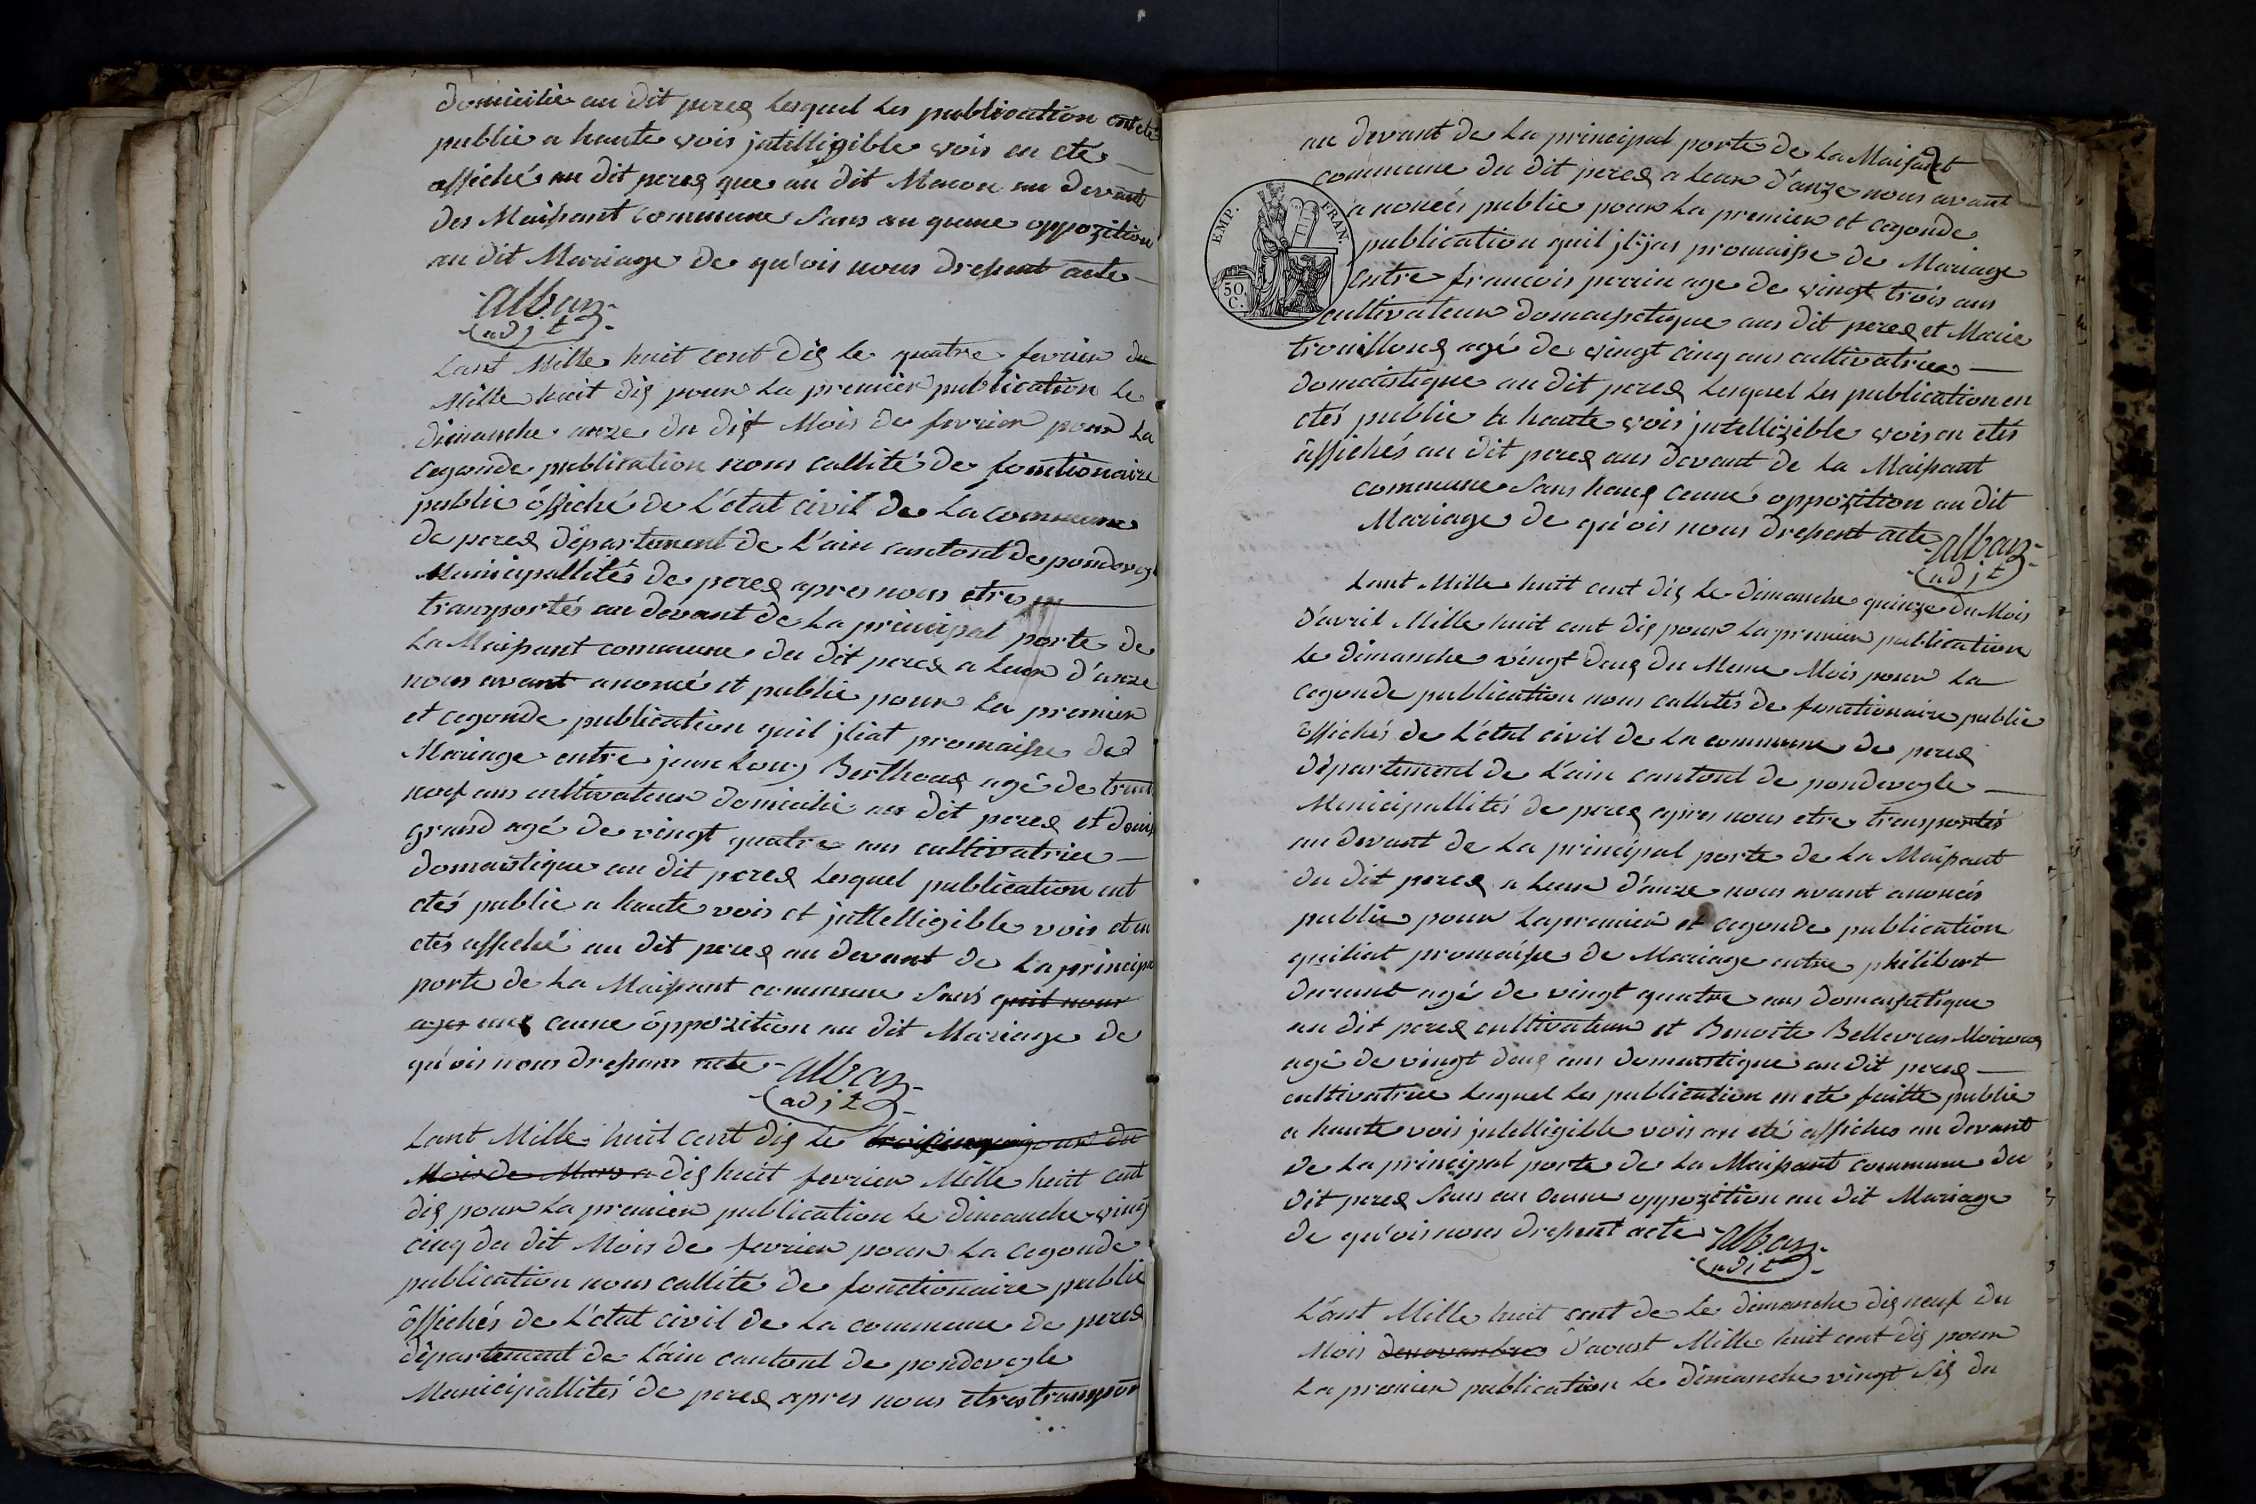 domicilie au dit perex lesquel les publication ont ete
publie a haute vois jntelligible vois en ete
affiché au dit perex que au dit Macon au devant
des Maisont commune sans au qune oppozition
au dit Mariage de qu'ois nous dressent acte
alban
adjt
Lant Mille huit cent dix le quatre fevrier du
Mille huit dix pour la premier publication le
dimanche onze du dit Mois de fevrier pour la
cegonde publication nous callité de fontionaire
public öffiché de L'état civil de La commune
de perex département de L'ain cantont de pondevegle
Municipallités de perex apres nous etres
transportés au devant de la principal porte de
La Maisont commune du dit perex a leur d'onze
nous avant anoncé et publie pour la premier
et cegonde publication quil jliat promaisse de
Mariage entre jean Louy Berthoux agé de trent
neuf ans cultivateur domicilié au dit perex et denis
grand agé de vingt quatre ans cultivatrice
domaistique au dit perex lesquel publication ont
etés publie a haute vois et jntelligible vois et en
etés affiché au dit perex au devant de la principa
porte de la Maisont commune sans quil nous
ayes aux cunne öppozition au dit Mariage de
qu'ois nous dressons acte alban
adjt
Lant Mille huit cent dix le jour du
Mois de Mars a dix huit fevrier Mille huit cent
dix pour La premier publication Le dimanche vingt
cinq du dit Mois de fevrier pour La cegonde
publication nous callité de fonctionaire public
öffichés de L'état civil de La commune de perex
département de L'ain cantont de pondevegle
Municipallités de perex apres nous etres transpor
au devant de La principal porte de La Maisont
2
commune du dit perex a leur d'onze nous avant
anoncés publie pour La premier et cegonde
publication quil jl jas promaisse de Mariage
entre francois perrin age de vingt trois ans
cultivateur domaistique aus dit perex et Marie
trouilloux agé de vingt cinq ans cultivatrice
domaistique au dit perex lesquel les publication en
etés publie a haute vois jntelligible vois en etés
affichés au dit perex aus devant de la Maisont
commune sans haux cunne oppozition au dit
Mariage de qu'ois nous dressent acte alban
adjt
EMP. FRAN.
50 C.
Lant Mille huit cent dix le dimanche quinze du Mois
d'avril Mille huit cent dix pour la premier publication
le dimanche vingt deux du Meme Mois pour la
cegonde publication nous callités de fonctionaire public
öffichés de L'état civil de La commune de perex
département de L'ain cantont de pondevegle
Municipallités de perex apres nous etre transportés
au devant de la principal porte de la Maisont
du dit perex a leur d'onze nous avant anoncés
publie pour La premier et cegonde publication
quiliat promaisse de Mariage entre philibert
durant agé de vingt quatre ans domaistique
au dit perex cultivateur et Benoite Bellevras Moiroux
agé de vingt deux ans domaistique au dit perex
cultivatrice lesquel les publication en eté faitte publie
a haute vois jntelligible vois on eté affiches au devant
de La principal porte de La Maisont commune du
dit perex sans au cunne oppozition au dit Mariage
de qu'ois nous dressent acte alban
adjt
L'ant Mille huit cent de le dimanche dix neuf du
Mois denovanbre d'aoust Mille huit cent dix pour
La premier publication le dimanche vingt six du